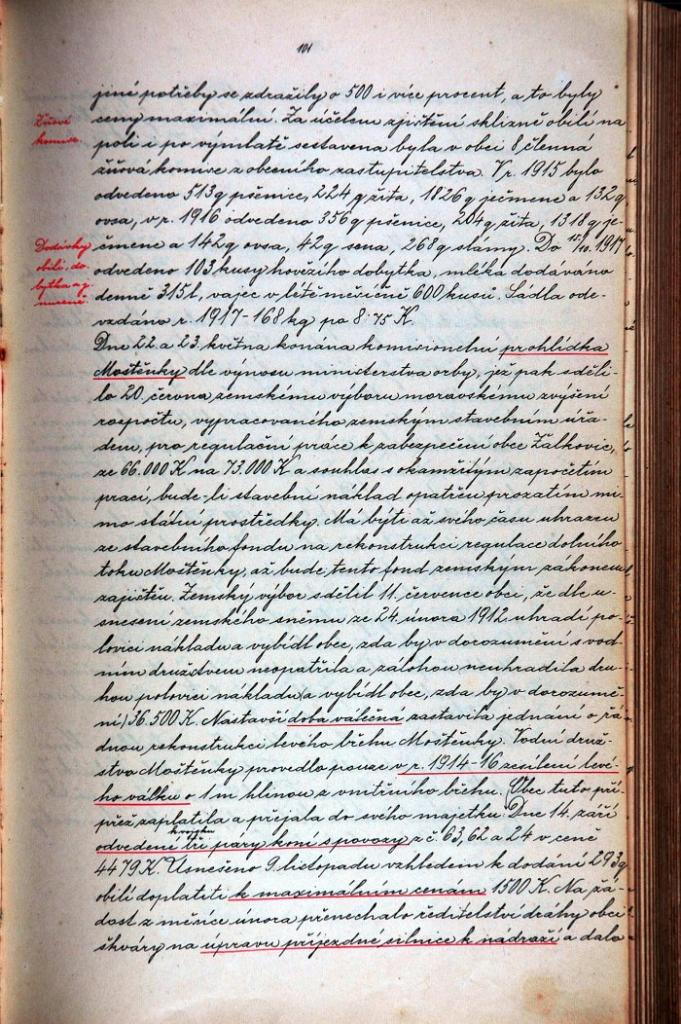 101
jiné potřeby se zdražily o 500 i více procent, a to byly
ceny maximální. Za účelem zjištění sklizně obilí na
Žňová
komise.
poli i po výmlatě sestavena byla v obci 8 členná
žňová komise z obecního zastupitelstva. V r. 1915 bylo
odvedeno 513 q pšenice, 224 q žita, 1826 q ječmene a 132 q
ovsa, v r. 1916 odvedeno 356 q pšenice, 204 q žita, 1318 q je-
Dodávky
obilí, do-
bytka a j.
čmene a 142 q ovsa, 42 q sena, 268 q slámy. Do 1917
odvedeno 103 kusy hovězího dobytka, mléka dodáváno
denně 315 l, vajec v létě měsíčně 600 kusů. Sádla ode-
vzdáno r. 1917 - 168 kg po 8·75 K.
Dne 22. a 23. května konána komisionelní prohlídka
Moštěnky dle výnosu ministerstva orby, jež pak sděli-
lo 20. června zemskému výboru moravskému zvýšení
rozpočtu, vypracovaného zemským stavebním úřa-
dem, pro regulační práce k zabezpečení obce Žalkovic,
ze 66.000 K na 73.000 K a souhlas s okamžitým započetím
prací, bude-li stavební náklad opatřen prozatím mi-
mo státní prostředky. Má býti až svého času uhrazen
ze stavebního fondu na rekonstrukci regulace dolního
toku Moštěnky, až bude tento fond zemským zákonem
zajištěn. Zemský výbor sdělil 11. července obci, že dle u-
snesení zemského sněmu ze 24. února 1912 uhradí po-
lovici nákladu a vybídl obec, zda by v dorozumění s vod-
ním družstvem neopatřila a zálohou neuhradila dru-
hou polovici nákladu (a vybídl obec, zda by v dorozumě-
ní) 36.500 K. Nastavší doba válečná zastavila jednání o řá-
dnou rekonstrukci levého břehu Moštěnky. Vodní druž-
stvo Moštěnky provedlo pouze v r. 1914-16 zesílení levé-
ho válku o 1 m hlinou z vnitřního břehu. (Obec tuto pří-
přež zaplatila a přejala do svého majetku. Dne 14. září
k vojsku
odvedeni tři páry koní s povozy z č. 63, 62 a 24 v ceně
4479 K. Usnešeno 9. listopadu vzhledem k dodání 293 q
obilí doplatiti k maximálním cenám 1500 K. Na žá-
dost z měsíce února přenechalo ředitelství dráhy obci
škváry na úpravu příjezdné silnice k nádraží a dalo